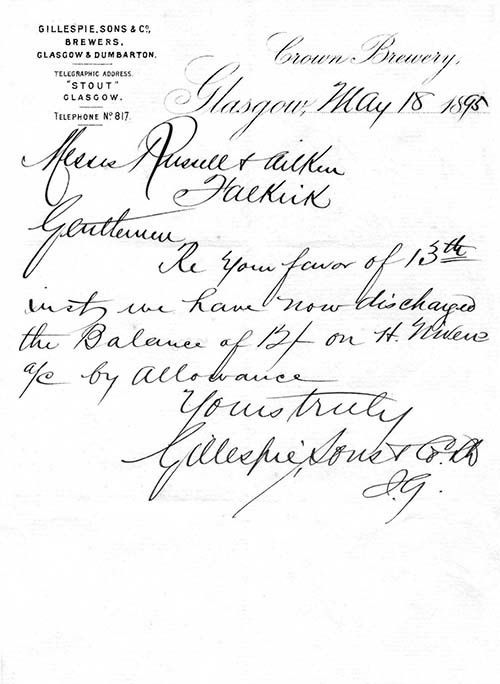 GILLESPIE, SONS & Co,
BREWERS,
GLASGOW & DUMBARTON.
TELEGRAPHIC ADDRESS.
"STOUT"
GLASGOW.
TELEPHONE No 817.
Crown Brewery,
Glasgow, May 18 1895
Messrs Russell & Aitken
Falkirk
Gentlemen
Re your favor of 13th
inst, we have now discharged
the Balance of 12/- on H. Niven's
a/c by Allowance
Yours truly
Gillespie, Sons & Co. Ld
J.G.